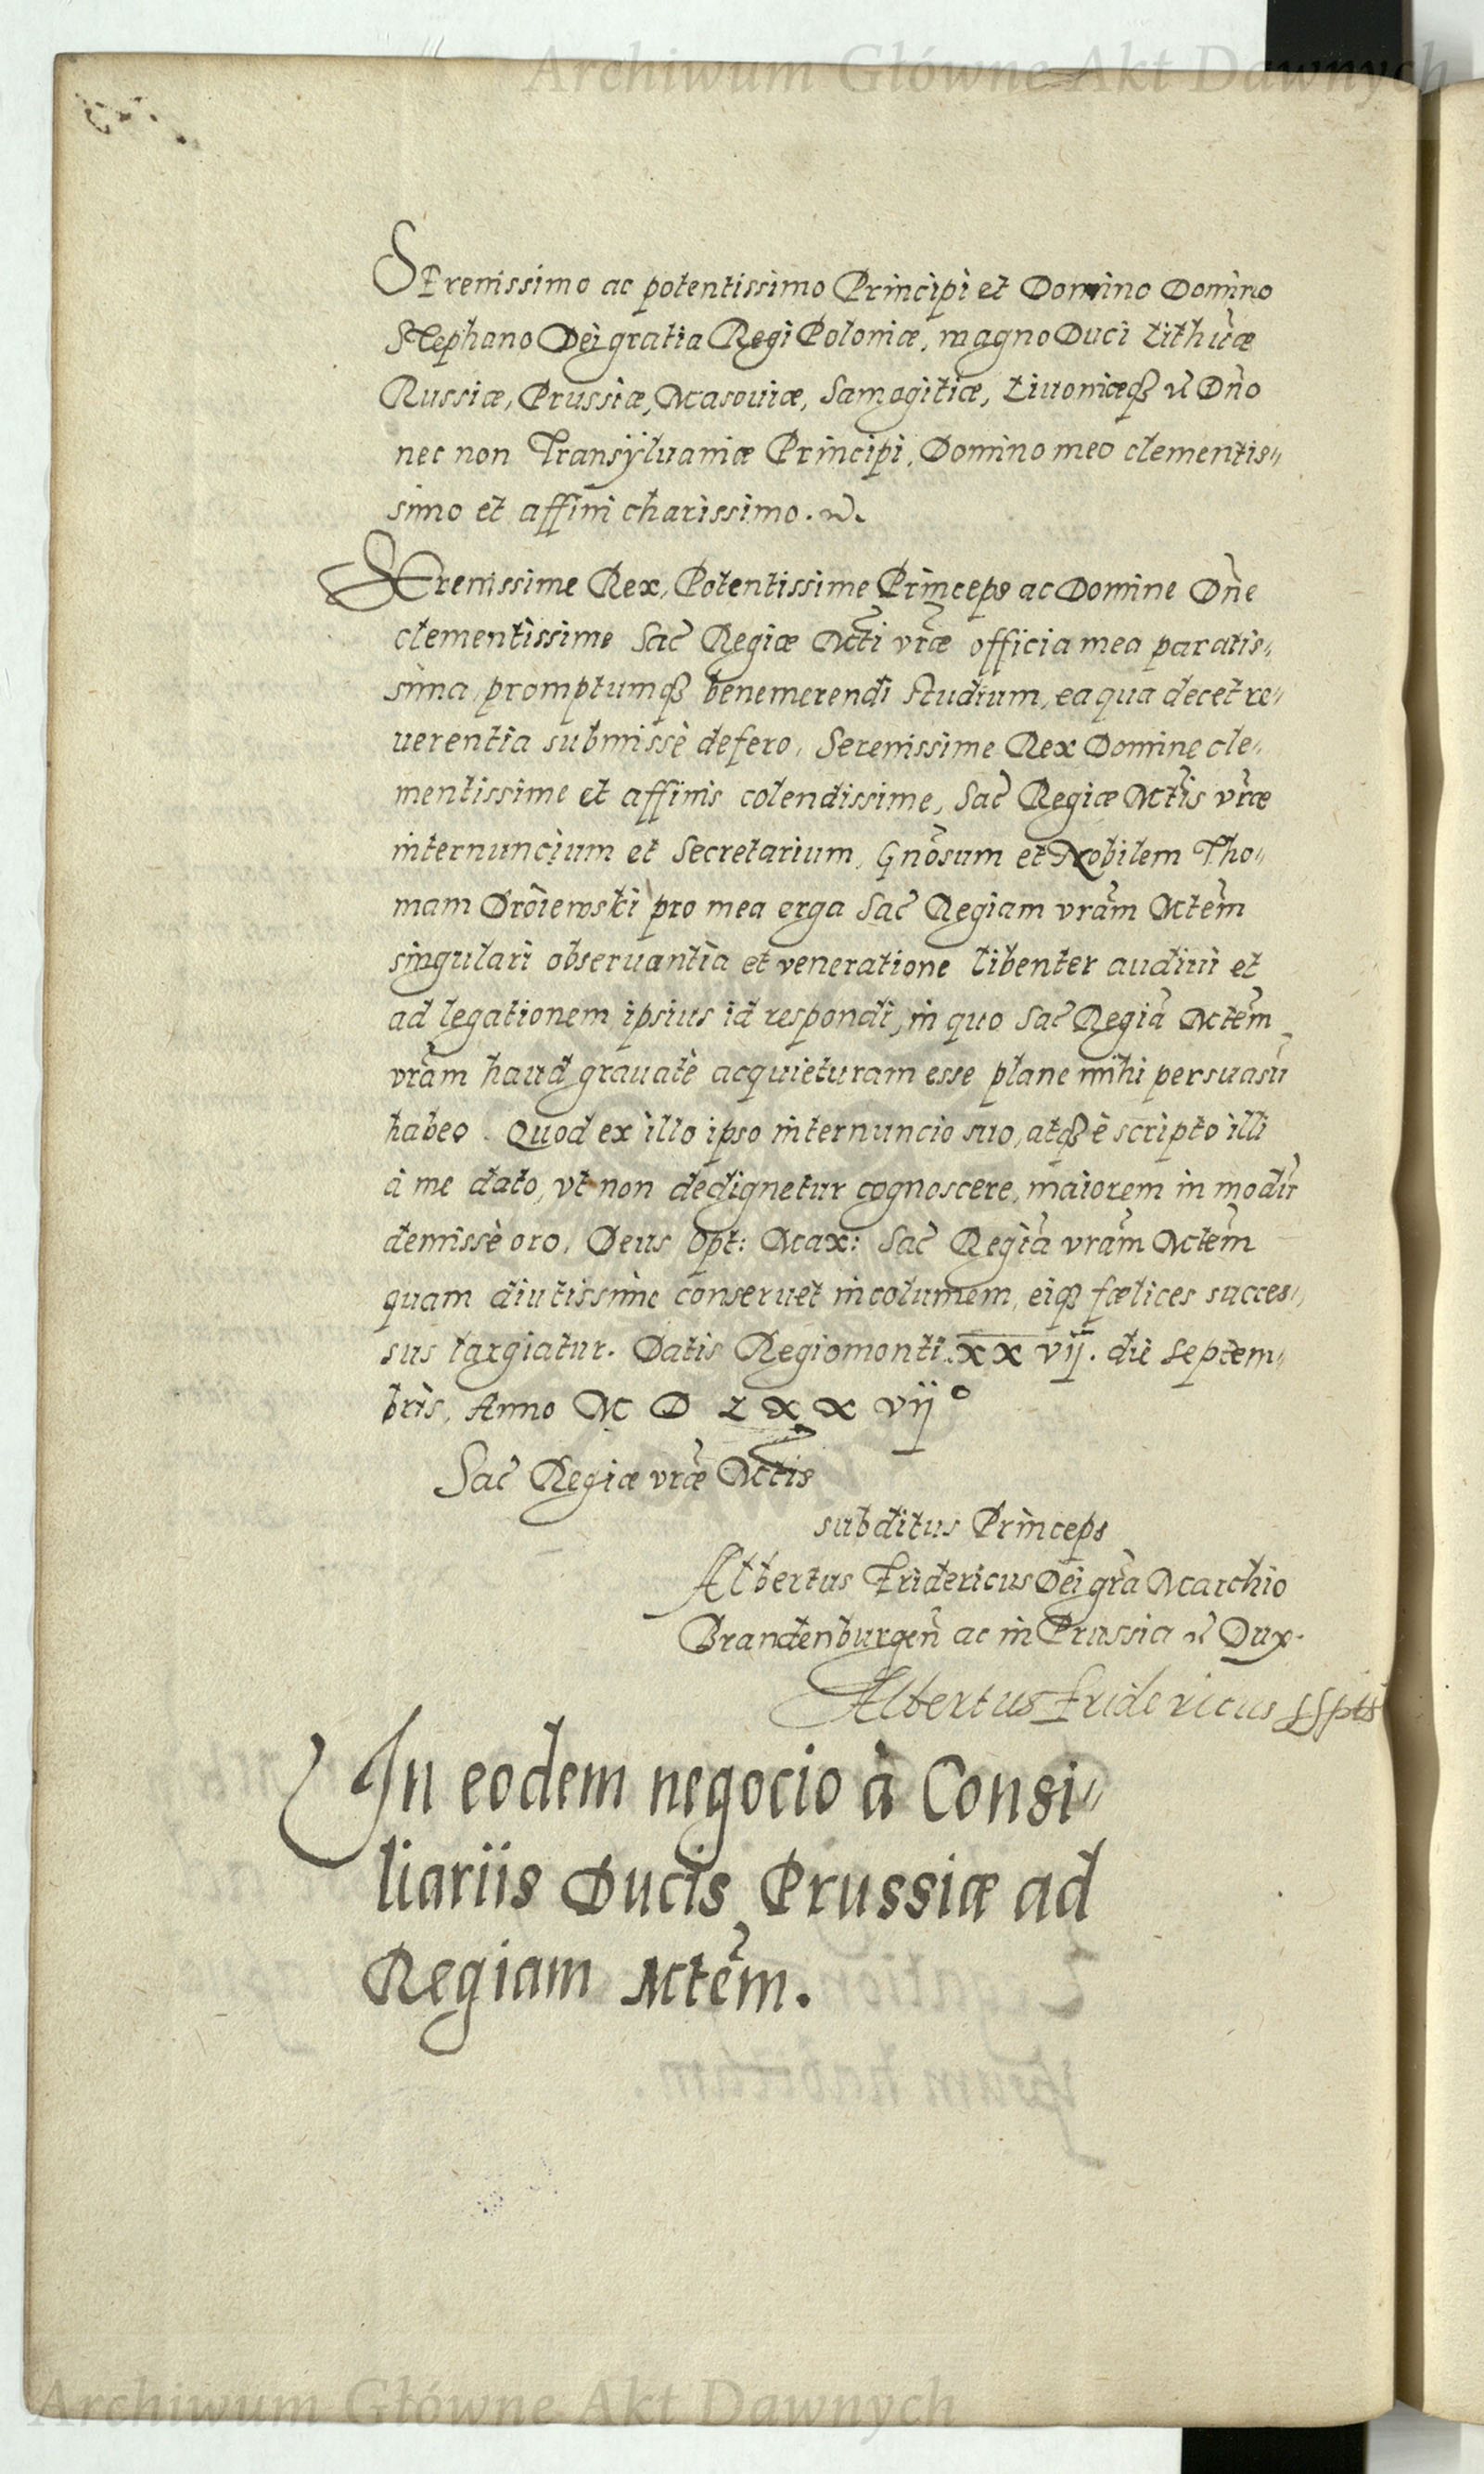 Archiwum Główne Akt Dawnych
SErenissimo ac potentissimo Principi et Domino Domino
Stephano Dei gratia Regi Poloniæ, magno Duci Lithuæ
Russiæ, Prussiæ, Masouiæ, Samogitiæ, Liuoniæq₃ et Dño
nec non Transyluaniæ Principi, Domino meo clementis„
simo et affini charissimo.
SErenissime Rex, Potentissime Princeps ac Domine Dñe
clementissime Sac̃ Regiæ Mt̃i vr̃æ officia mea paratis„
sima, promptumq₃ benemerendi studium, ea qua decet re„
uerentia submissè defero, Serenissime Rex Domine cle„
mentissime et affinis colendissime, Sac̃ Regiæ Mt̃is vr̃æ
internuncium et Secretarium, Gnõsum et Nobilem Tho„
mam Droiewski pro mea erga Sac̃ Regiam vrãm Mtẽm
singulari obseruantia et veneratione libenter audiui et
ad legationem ipsius id respondi, in quo Sac̃ Regiã Mtẽm
vrãm haud grauatè acquieturam esse plane mihi persuasũ
habeo. Quod ex illo ipso internuncio suo, atq₃ è scripto illi
à me dato, vt non dedignetur cognoscere, maiorem in modũ
demissè oro, Deus Opt: Max: Sac̃ Regiã vrãm Mtẽm
quam diutissime conseruet incolumem, eiq₃ fœlices succes„
sus largiatur. Datis Regiomonti. XX vij. die Septem„
bris, Anno M D L X X vij°
Sac̃ Regiæ vr̃æ Mtis
subditus Princeps
Albertus Fridericus Dei grã Marchio
Brandenburgeñ ac in Prussia et Dux.
Albertus Fridericus sspts
In eodem negocio à Consi„
liariis Ducis Prussiæ ad
Regiam Mtẽm.
Archiwum Główne Akt Dawnych